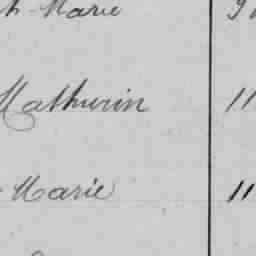 Marie
Mathurin 11
Marie 11